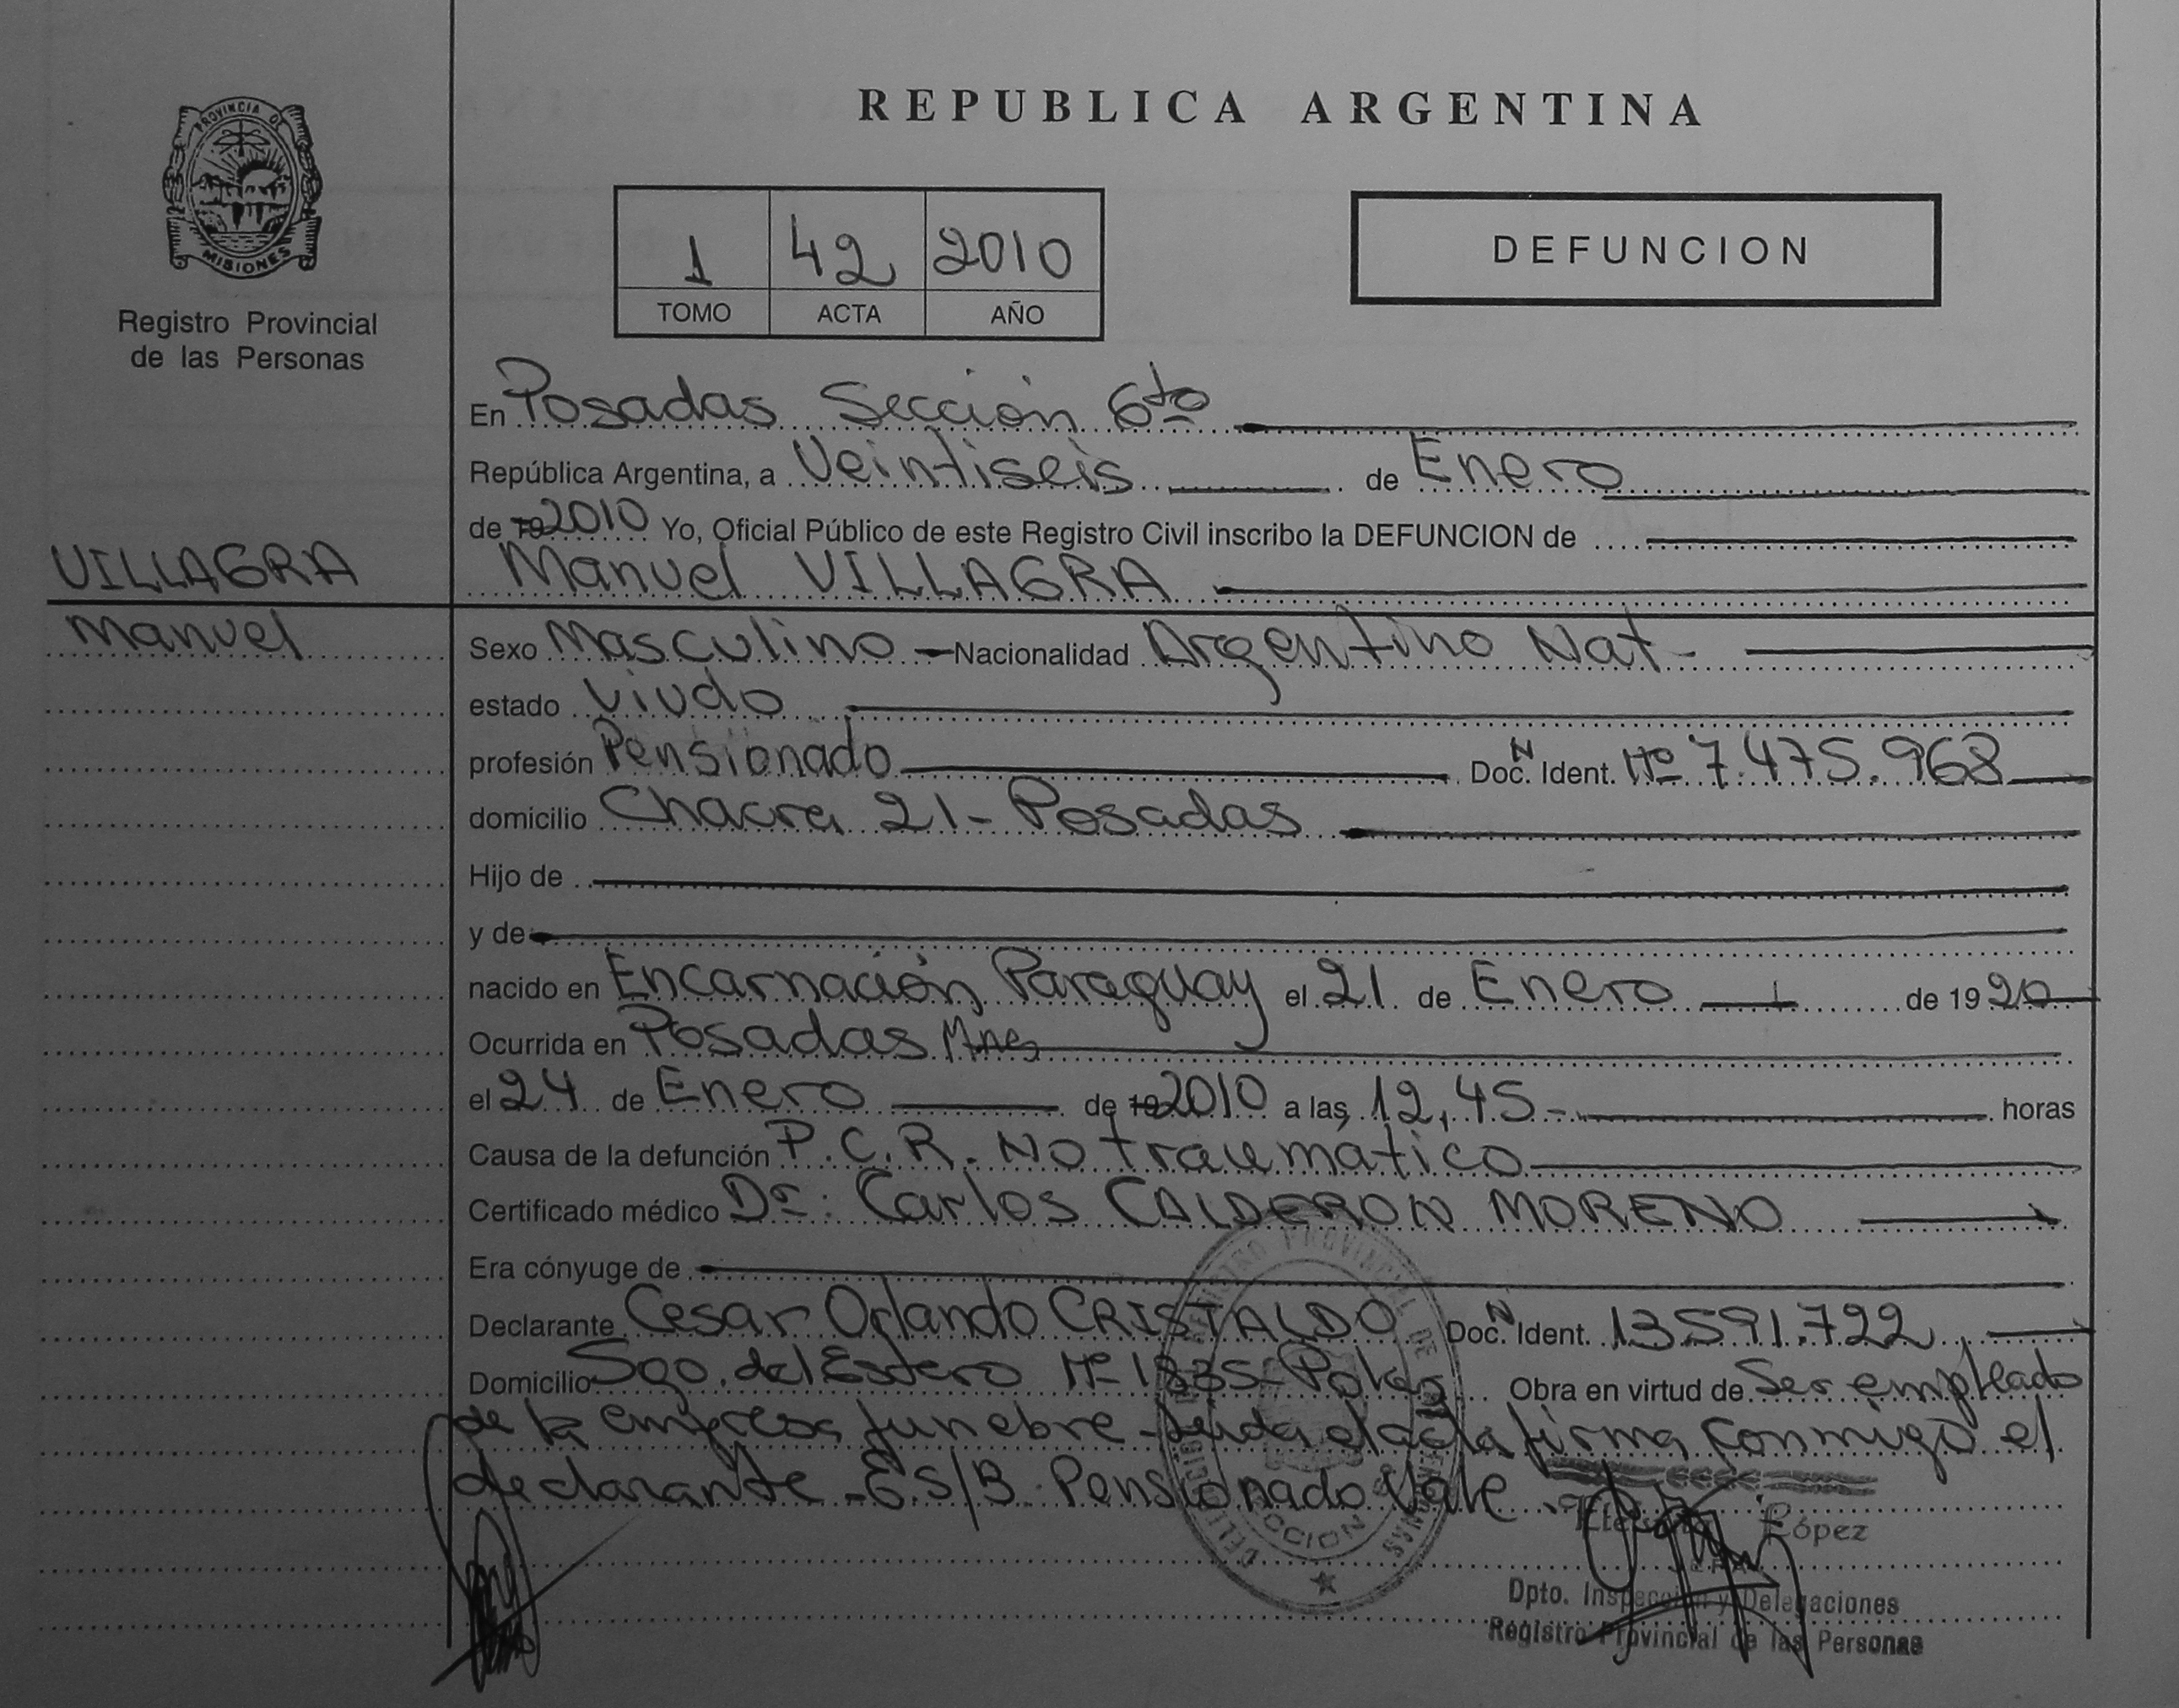 REPUBLICA ARGENTINA
PROVINCIA DE
MISIONES
Registro Provincial
de las Personas
1 42 2010
TOMO ACTA AÑO
DEFUNCION
En Posadas Sección 6to
República Argentina, a Veintiseis de Enero
de 19 2010 Yo, Oficial Público de este Registro Civil inscribo la DEFUNCION de
VILLAGRA
Manuel
Manuel VILLAGRA
Sexo Masculino - Nacionalidad Argentino Nat-
estado Viudo
profesión Pensionado Doc. N Ident. Nº 7.475.968
domicilio Chacra 21- Posadas
Hijo de
y de
nacido en Encarnación Paraguay el 21 de Enero de 1920
Ocurrida en Posadas Mnes
el 24 de Enero de 19 2010 a las 12,45- horas
Causa de la defunción P.C.R. No traumatico
Certificado médico Dr: Carlos CALDERON MORENO
Era cónyuge de
Declarante Cesar Orlando CRISTALDO Doc. N Ident. 13.591.722
Domicilio Sgo. del Estero Nº 1835- Obra en virtud de Ser empleado
de la empresa funebre - Leida el acta firma conmigo el
declarante - E.S/B. Pensionado Vale
REGISTRO PROVINCIAL DE LAS PERSONAS
López
Dpto. Inspección y Delegaciones
Registro Provincial de las Personas